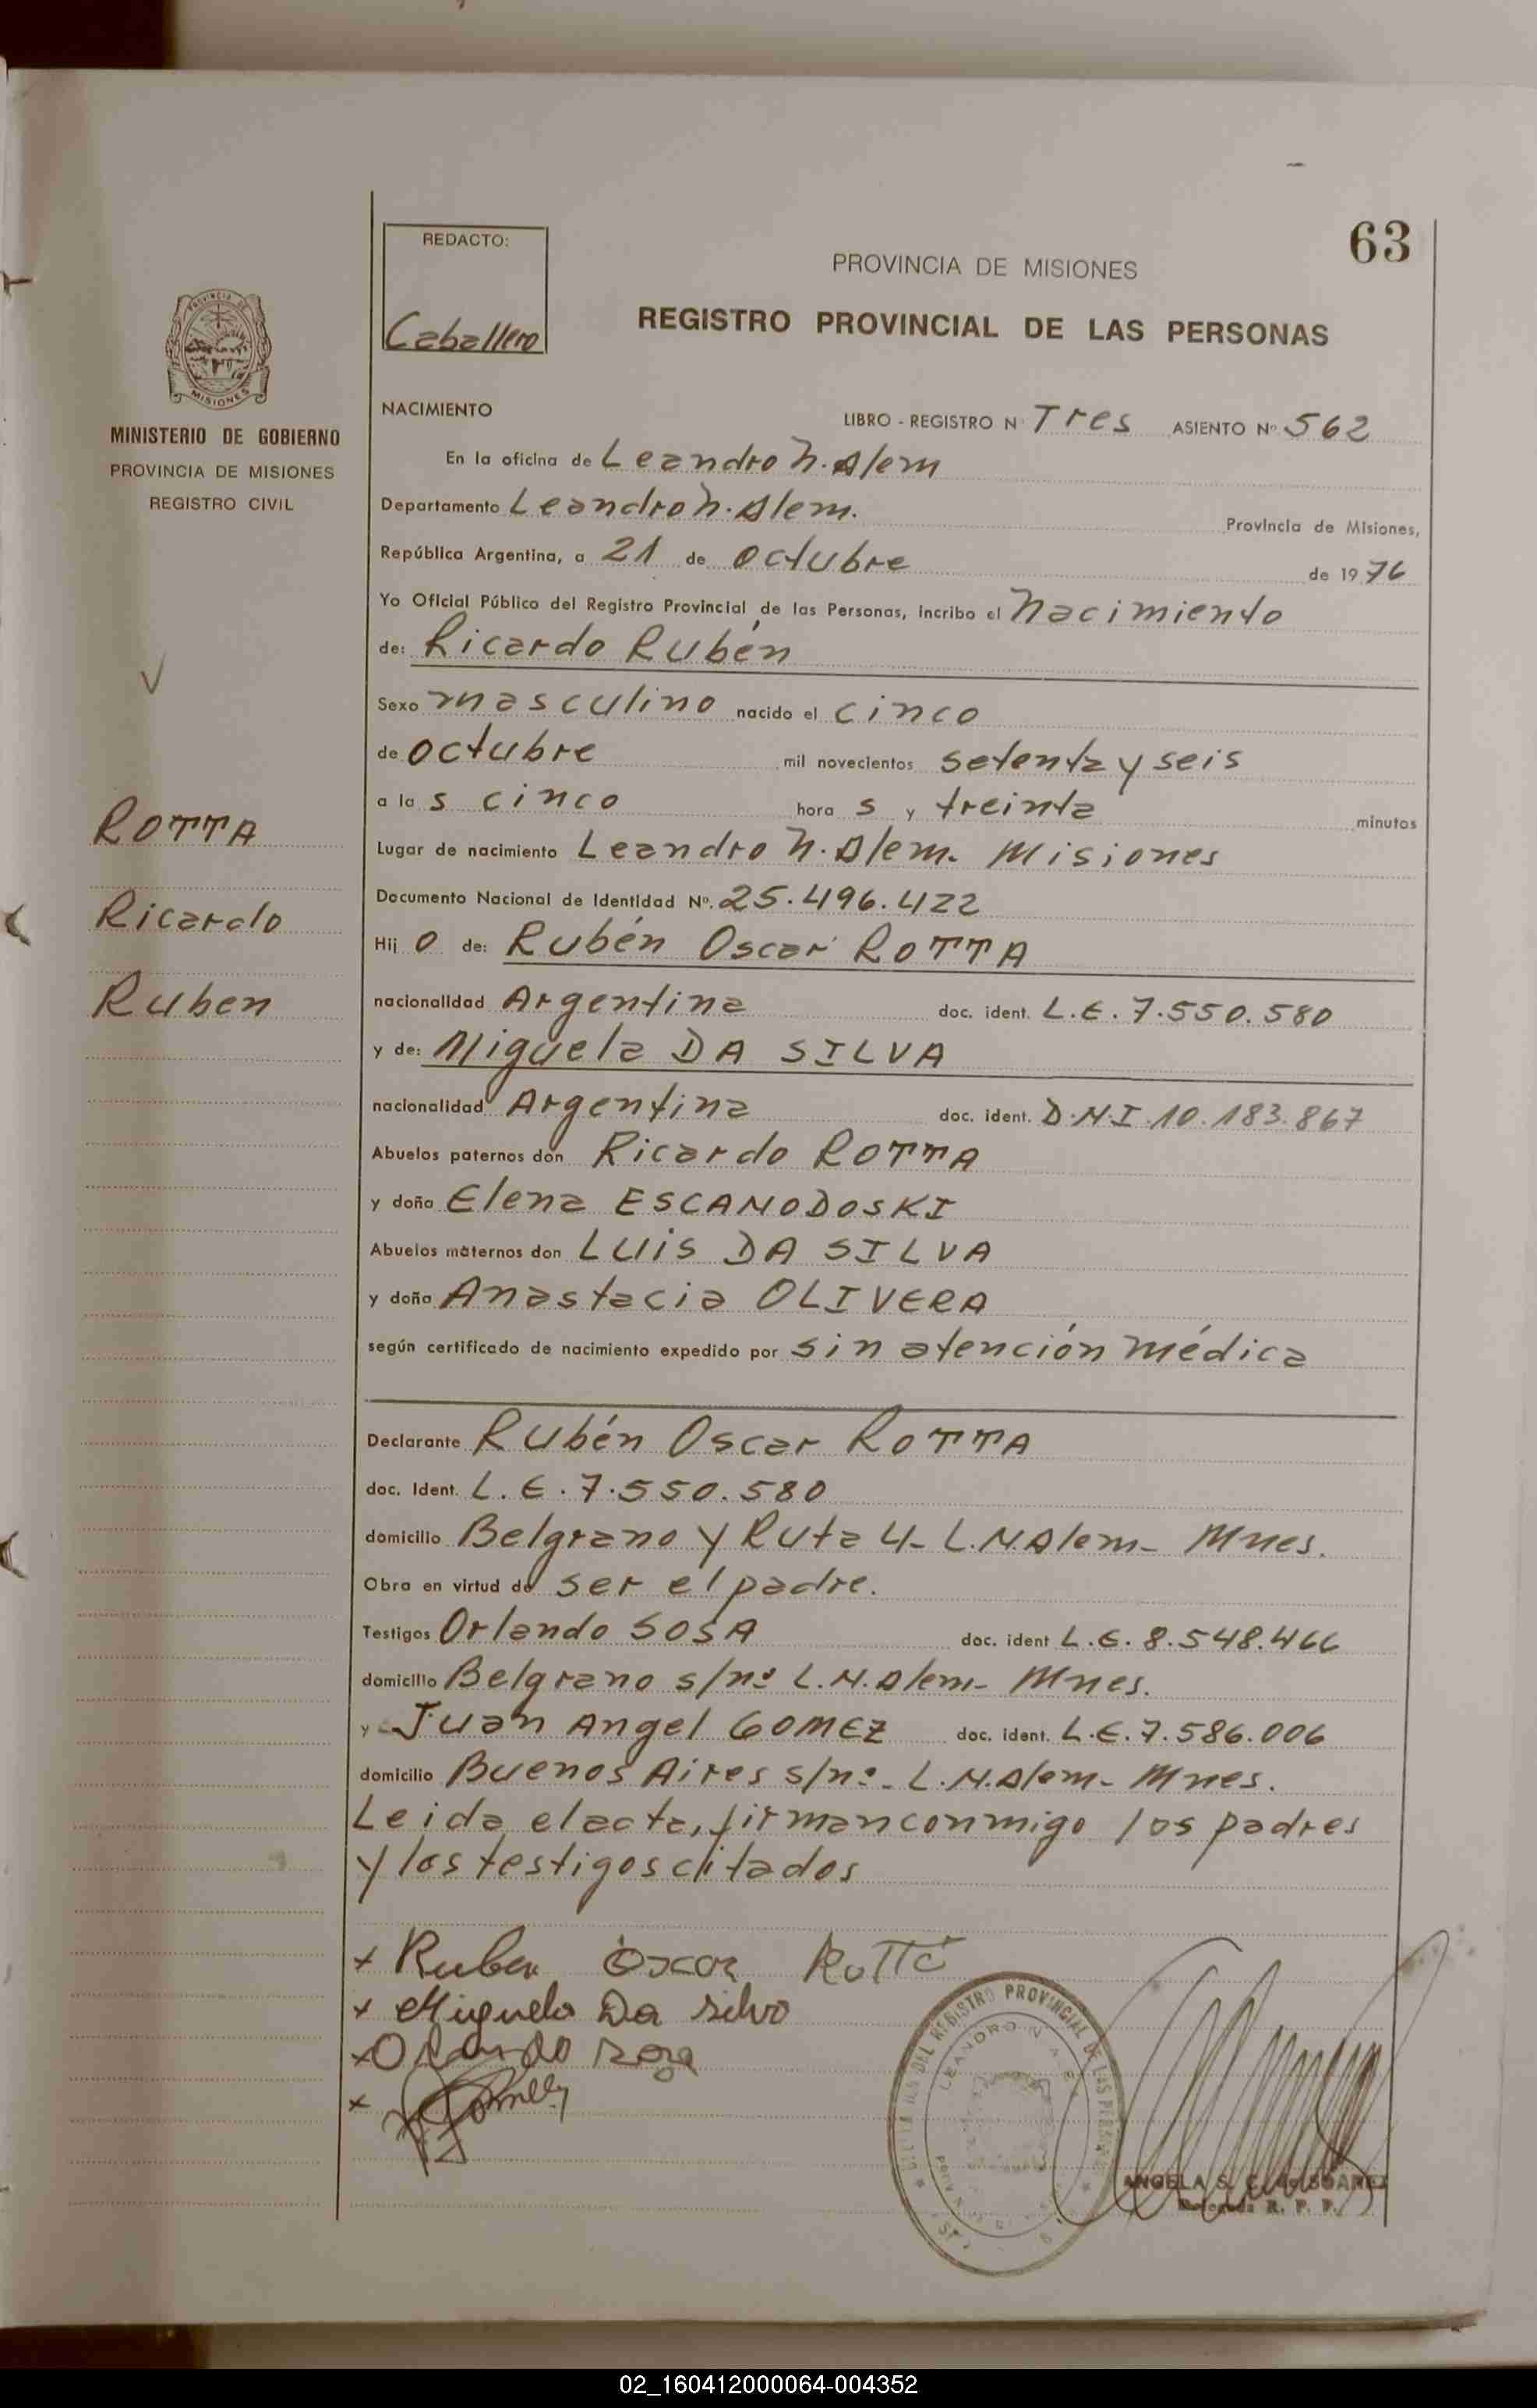 63
REDACTO:
Caballero
PROVINCIA DE MISIONES
REGISTRO PROVINCIAL DE LAS PERSONAS
PROVINCIA DE
MISIONES
MINISTERIO DE GOBIERNO
PROVINCIA DE MISIONES
REGISTRO CIVIL
ROTTA
Ricardo
Ruben
NACIMIENTO LIBRO - REGISTRO Nº Tres ASIENTO Nº 562
En la oficina de Leandro N. Alem
Departamento Leandro N. Alem. Provincia de Misiones,
República Argentina, a 21 de octubre de 1976
Yo Oficial Público del Registro Provincial de las Personas, incribo el Nacimiento
de: Ricardo Rubén
Sexo masculino nacido el cinco
de octubre mil novecientos setenta y seis
a las cinco horas y treinta minutos
Lugar de nacimiento Leandro N. Alem. Misiones
Documento Nacional de Identidad Nº. 25.496.422
Hijo de: Rubén Oscar ROTTA
nacionalidad Argentina doc. ident. L.E. 7.550.580
y de: Miguela DA SILVA
nacionalidad Argentina doc. ident. D.N.I. 10.183.867
Abuelos paternos don Ricardo ROTTA
y doña Elena ESCANODOSKI
Abuelos maternos don Luis DA SILVA
y doña Anastacia OLIVERA
según certificado de nacimiento expedido por sin atención médica
Declarante Rubén Oscar ROTTA
doc. Ident. L.E. 7.550.580
domicilio Belgrano y Ruta 4- L.N.Alem- Mnes.
Obra en virtud de ser el padre.
Testigos Orlando SOSA doc. ident L.E. 8.548.466
domicilio Belgrano s/nº L.N.Alem- Mnes.
y Juan Angel GOMEZ doc. ident. L.E. 7.586.006
domicilio Buenos Aires s/nº- L.N.Alem- Mnes.
Leida el acta, firman conmigo los padres
y los testigos citados
x Ruben Oscar Rotta
x Miguela Da Silva
x Orlando Sosa
x
DEL REGISTRO PROVINCIAL DE LAS PERSONAS
LEANDRO N. ALEM
ANGELA S. C. de SOAREZ
Delegada R. P. P.
02_160412000064-004352